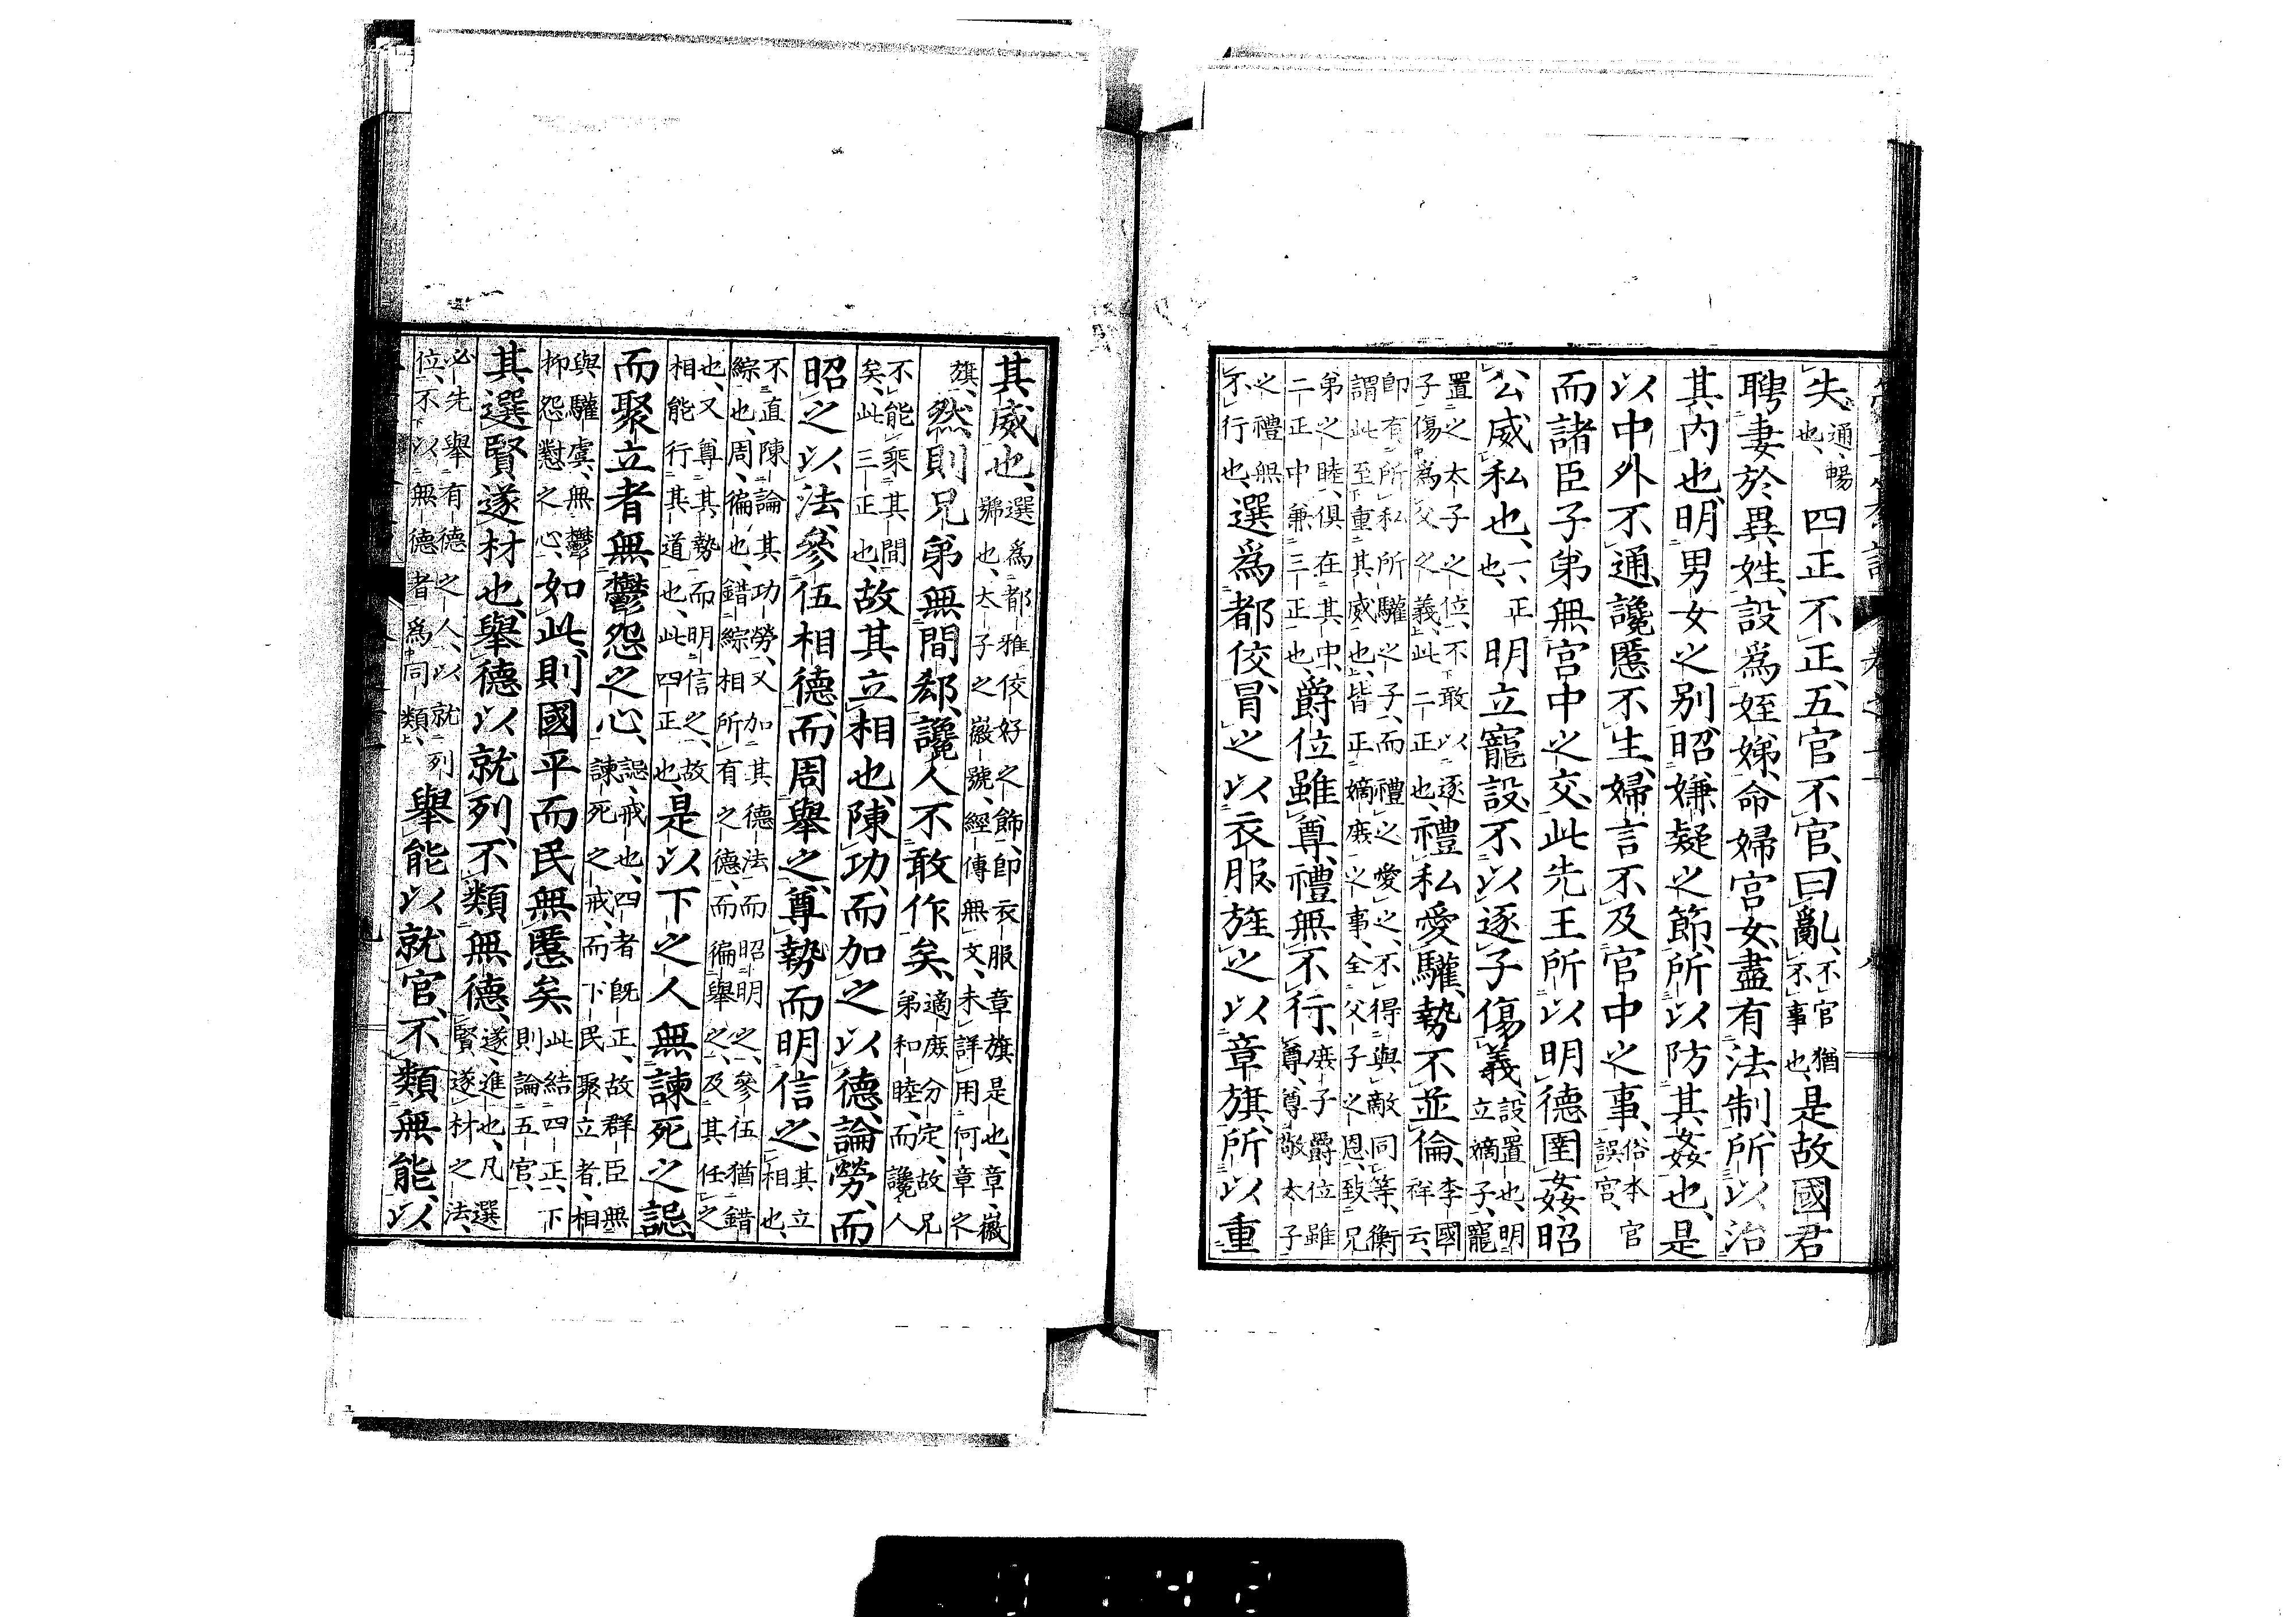 失、通、暢也、四正不正、五官不官、曰亂、不官猶不事也、是故國君
聘妻於異姓、設爲姪娣、命婦宮女、盡有法制、所以治
其內也、明男女之別、昭嫌疑之節、所以防其姦也、是
以中外不通、讒慝不生、婦言不及官中之事、俗本官誤宮、
而諸臣子弟無宮中之交、此先王所以明德圉姦、昭
公威私也、一正也、明立寵設、不以逐子傷義、設、置也、明立嫡子、寵
置之太子之位、不敢以逐子傷爲父之義、此二正也、禮私愛驩、勢不並倫、李國祥云、
卽有所私所驩之子、而禮之愛之、不得與敵同等、衡謂此至重其威也、皆正嫡庶之事、全父子之恩、致兄
弟之睦、俱在其中、二正中兼三正也、爵位雖尊、禮無不行、庶子之爵位雖尊、尊敬太子
之禮無不行也、選爲都佼、冒之以衣服、旌之以章旗、所以重
其威也、選爲都雅佼好之飾、卽衣服章旗是也、章、徽號也、太子之徽號、經傳無文、未詳用何章之
旗、然則兄弟無間郄、讒人不敢作矣、適庶分定、故兄弟和睦、而讒人
不能乘其間矣、此三正也、故其立相也、陳功、而加之以德、論勞、而
昭之以法、參伍相德、而周擧之、尊勢而明信之、其立相也、
不直陳論其功勞、又加其德法而昭明之、參伍猶錯綜也、周、徧也、錯綜相所有之德、而徧擧之、及其任之
也、又尊其勢而明信之、故相能行其道也、此四正也、是以下之人無諫死之誋、
而聚立者無鬱怨之心、誋、戒也、四者旣正、故群臣無諫死之戒、而下民聚立者、相
與驩虞、無鬱抑怨懟之心、如此、則國平而民無慝矣、此結四正、下則論五官、
其選賢遂材也、擧德以就列、不類無德、遂、進也、凡選賢遂材之法、
必先擧有德之人、以就列位、不以無德者爲同類、擧能以就官、不類無能、以